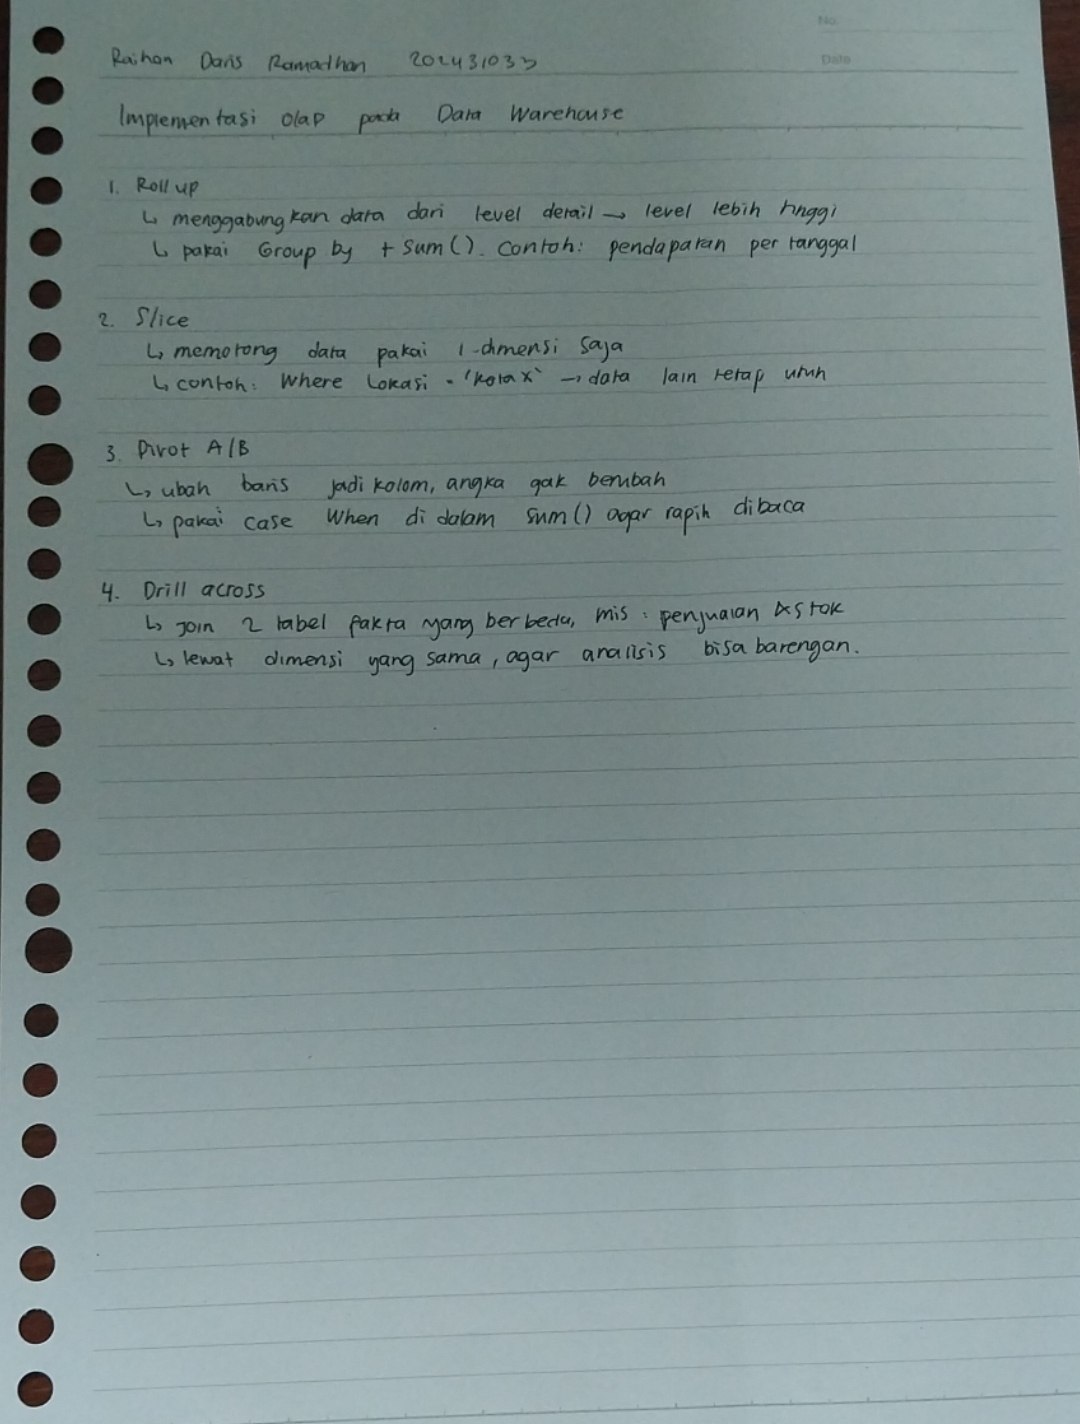 No.
Date
Raihan Daris Ramadhan 202431033
Implementasi Olap pada Data Warehouse
1. Roll up
↳ menggabungkan data dari level detail → level lebih tinggi
↳ pakai Group by + Sum(). Contoh: pendapatan per tanggal
2. Slice
↳ memotong data pakai 1 dimensi saja
↳ contoh: Where Lokasi = 'Kota X' → data lain tetap utuh
3. Pivot A/B
↳ ubah baris jadi kolom, angka gak berubah
↳ pakai case When di dalam sum() agar rapih dibaca
4. Drill across
↳ join 2 tabel fakta yang berbeda, mis: penjualan & stok
↳ lewat dimensi yang sama, agar analisis bisa barengan.